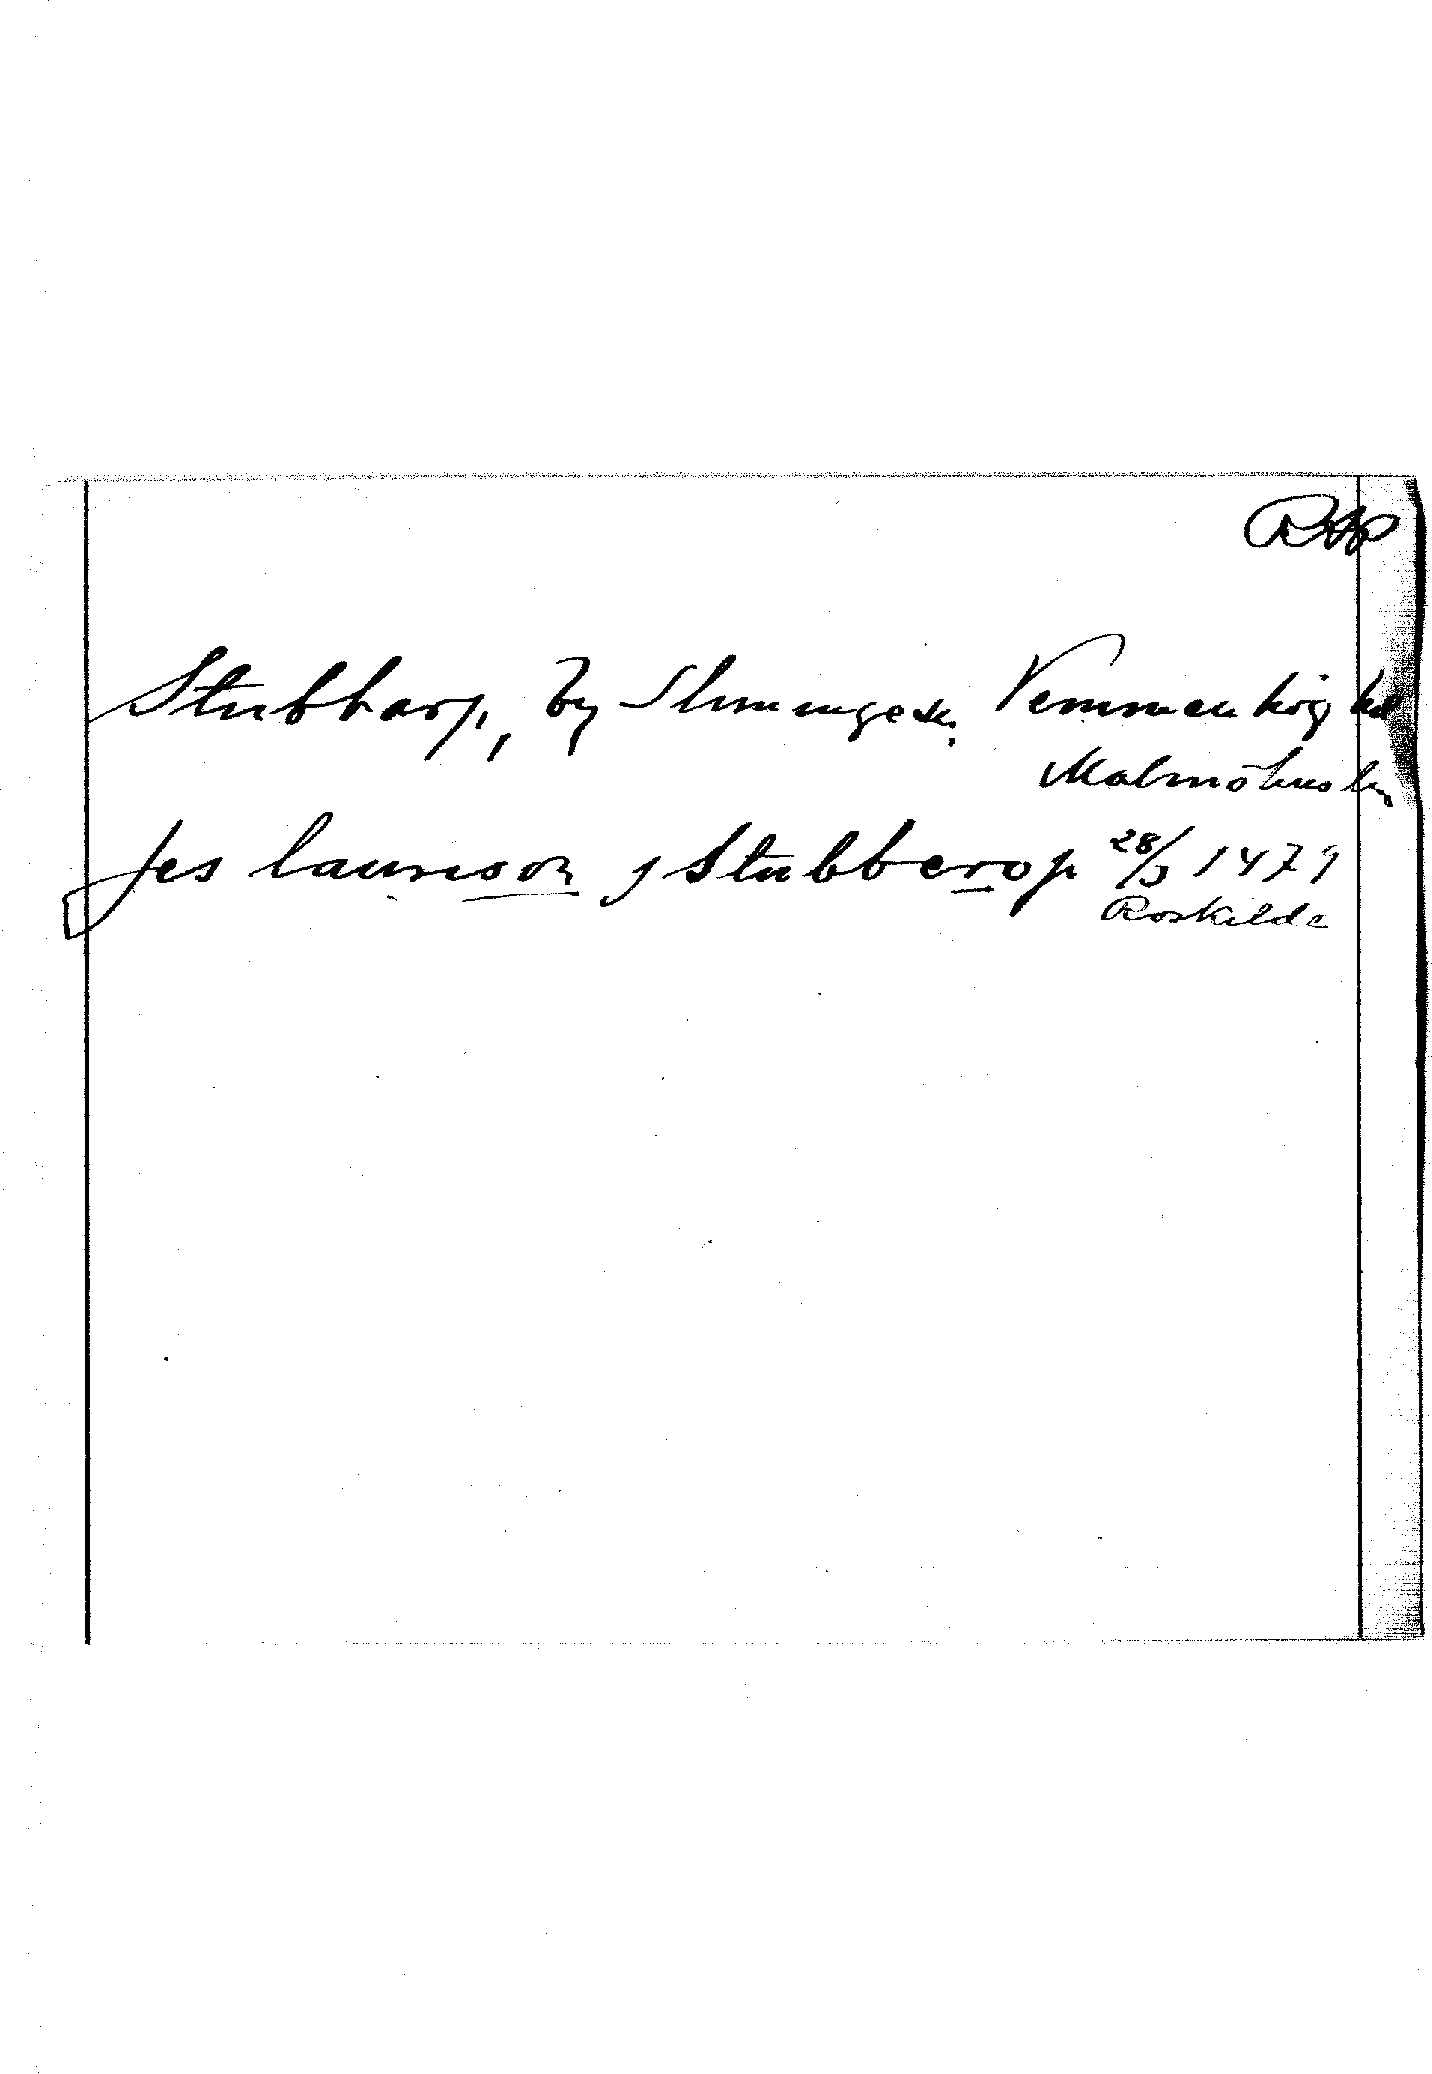 RAP
Stubbarp, by Slimmingesn. Vemmenhög hd
Malmöhus län
Jes laurison j Stubberop 28/3 1479
Roskilde